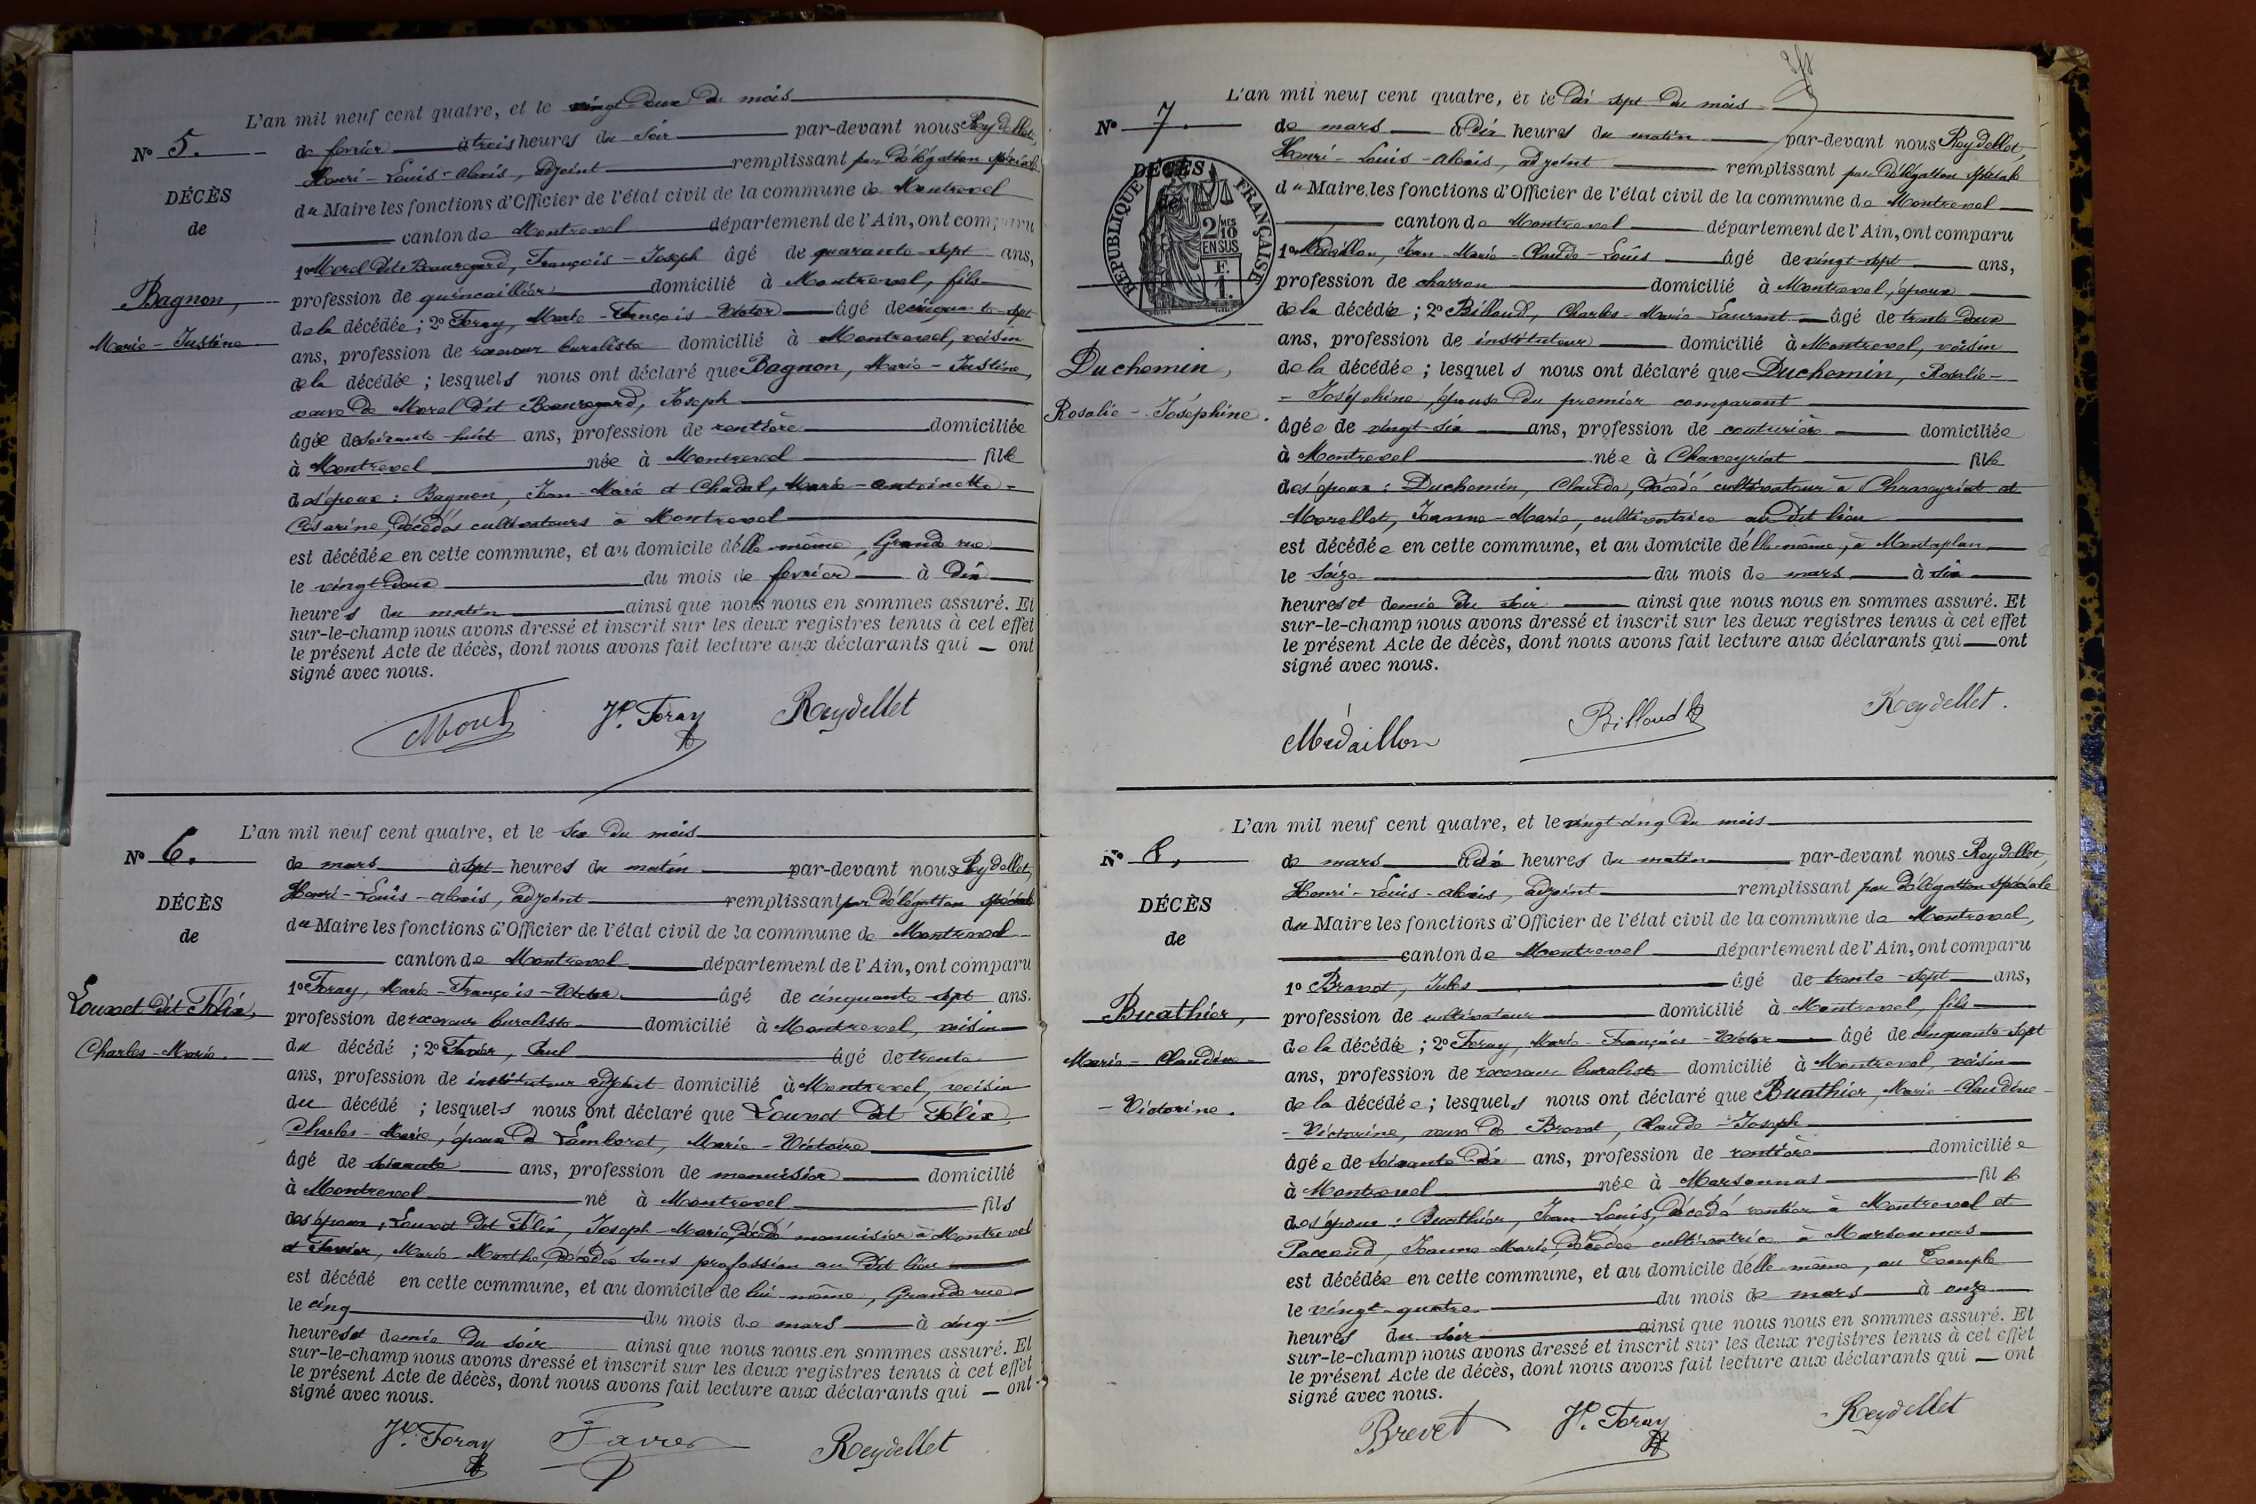 L'an mil neuf cent quatre, et le vingt deux du mois
N° 5.
de fevrier à trois heures du soir par-devant nous Reydellet,
Henri-Louis-Alexis, adjoint remplissant par délégation spéciale
DÉCÈS
du Maire les fonctions d'Officier de l'état civil de la commune de Montrevel
de
canton de Montrevel département de l'Ain, ont comparu
1° Morel dit Beauregard, François-Joseph âgé de quarante-sept ans,
Bagnon,
profession de quincaillier domicilié à Montrevel, fils
de la décédée; 2° Foray, Marie-François-Victor âgé de cinquante-sept
Marie-Justine
ans, profession de receveur buraliste domicilié à Montrevel, voisin
de la décédée; lesquels nous ont déclaré que Bagnon, Marie-Justine,
veuve de Morel dit Beauregard, Joseph
âgée de soixante-huit ans, profession de rentière domiciliée
à Montrevel née à Montrevel fille
des époux: Bagnon, Jean-Marie et Chadal, Marie-Antoinette-
Césarine, décédés cultivateurs à Montrevel
est décédée en cette commune, et au domicile d'elle-même, Grande rue
le vingt deux du mois de fevrier à dix
heures du matin ainsi que nous nous en sommes assuré. Et
sur-le-champ nous avons dressé et inscrit sur les deux registres tenus à cet effet
le présent Acte de décès, dont nous avons fait lecture aux déclarants qui ont
signé avec nous.
Morel Vr. Foray Reydellet
L'an mil neuf cent quatre, et le six du mois
N° 6.
de mars à sept heures du matin par-devant nous Reydellet,
Henri-Louis-Alexis, adjoint remplissant par délégation spéciale
DÉCÈS
du Maire les fonctions d'Officier de l'état civil de la commune de Montrevel
de
canton de Montrevel département de l'Ain, ont comparu
1° Foray, Marie-François-Victor âgé de cinquante-sept ans.
Louvet dit Félix,
profession de receveur buraliste domicilié à Montrevel, voisin
Charles-Marie.
du décédé; 2° Favier, Paul âgé de trente
ans, profession de instituteur adjoint domicilié à Montrevel, voisin
du décédé; lesquels nous ont déclaré que Louvet dit Félix,
Charles-Marie, époux de Lamberet, Marie-Victoire
âgé de soixante ans, profession de menuisier domicilié
à Montrevel né à Montrevel fils
des époux: Louvet dit Félix, Joseph-Marie, décédé menuisier à Montrevel
et Favier, Marie-Marthe, décédée sans profession au dit lieu
est décédé en cette commune, et au domicile de lui-même, Grande rue
le cinq du mois de mars à cinq
heures et demie du soir ainsi que nous nous en sommes assuré. Et
sur-le-champ nous avons dressé et inscrit sur les deux registres tenus à cet effet
le présent Acte de décès, dont nous avons fait lecture aux déclarants qui ont
signé avec nous.
Vr. Foray Favier Reydellet
L'an mil neuf cent quatre, et le dix sept du mois
N° 7.
de mars à dix heures du matin par-devant nous Reydellet,
Henri-Louis-Alexis, adjoint remplissant par délégation spéciale
DÉCÈS
RÉPUBLIQUE FRANÇAISE
2/10 MES
EN SUS
F.
1.
du Maire les fonctions d'Officier de l'état civil de la commune de Montrevel
canton de Montrevel département de l'Ain, ont comparu
1° Médaillon, Jean-Marie-Claude-Louis âgé de vingt-sept ans,
profession de charron domicilié à Montrevel, époux
de la décédée; 2° Billoud, Charles-Marie-Laurent âgé de trente deux
ans, profession de instituteur domicilié à Montrevel, voisin
Duchemin,
de la décédée; lesquels nous ont déclaré que Duchemin, Rosalie-
-Joséphine, épouse du premier comparant
Rosalie-Joséphine.
âgée de vingt-six ans, profession de couturière domiciliée
à Montrevel née à Chaveyriat fille
des époux: Duchemin, Claude, décédé cultivateur à Chaveyriat et
Morellet, Jeanne-Marie, cultivatrice au dit lieu
est décédée en cette commune, et au domicile d'elle-même, à Montaplan
le seize du mois de mars à six
heures et demie du soir ainsi que nous nous en sommes assuré. Et
sur-le-champ nous avons dressé et inscrit sur les deux registres tenus à cet effet
le présent Acte de décès, dont nous avons fait lecture aux déclarants qui ont
signé avec nous.
Médaillon Billoud Reydellet.
L'an mil neuf cent quatre, et le vingt cinq du mois
N° 8.
de mars à dix heures du matin par-devant nous Reydellet,
Henri-Louis-Alexis, adjoint remplissant par délégation spéciale
DÉCÈS
du Maire les fonctions d'Officier de l'état civil de la commune de Montrevel,
de
canton de Montrevel département de l'Ain, ont comparu
1° Brevet, Jules âgé de trente-sept ans,
Buathier,
profession de cultivateur domicilié à Montrevel, fils
de la décédée; 2° Foray, Marie-François-Victor âgé de cinquante-sept
Marie-Claudine-
ans, profession de receveur buraliste domicilié à Montrevel, voisin
-Victorine.
de la décédée; lesquels nous ont déclaré que Buathier, Marie-Claudine-
-Victorine, veuve de Brevet, Claude-Joseph
âgée de soixante dix ans, profession de rentière domiciliée
à Montrevel née à Marsonnas fille
des époux: Buathier, Jean-Louis, décédé rentier à Montrevel et
Paccoud, Jeanne-Marie, décédée cultivatrice à Marsonnas
est décédée en cette commune, et au domicile d'elle-même, au Temple
le vingt-quatre du mois de mars à onze
heures du soir ainsi que nous nous en sommes assuré. Et
sur-le-champ nous avons dressé et inscrit sur les deux registres tenus à cet effet
le présent Acte de décès, dont nous avons fait lecture aux déclarants qui ont
signé avec nous.
Brevet Vr. Foray Reydellet